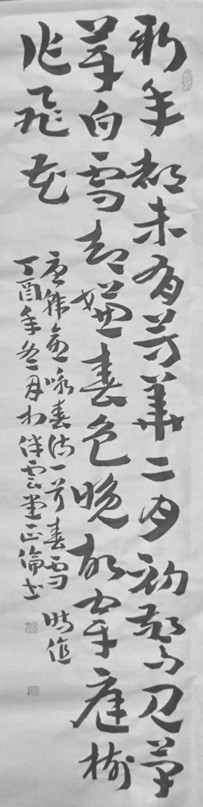 新年都未有芳華二月初驚見草
芽白雪却嫌春色晚故穿庭樹
作飛花
唐韓愈咏春詩一首春雪時值
丁酉年冬月於伴雲堂正倫書